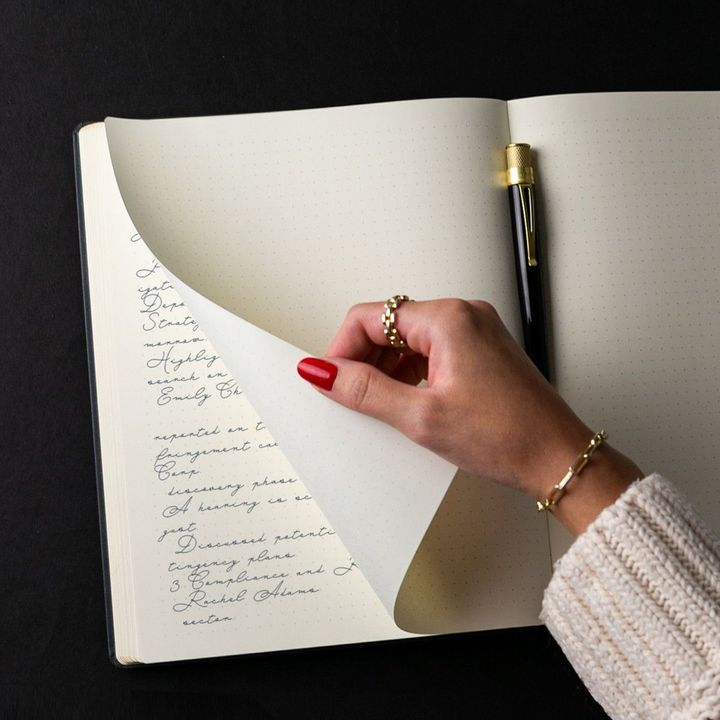 Strate
morrow
Highlig
search on
Emily Ch
reported on t
fringement ca
Corp.
discovery phase
A hearing is sc
gust.
Discussed potenti
tingency plans
3 Compliance and R
Rachel Adams
sector